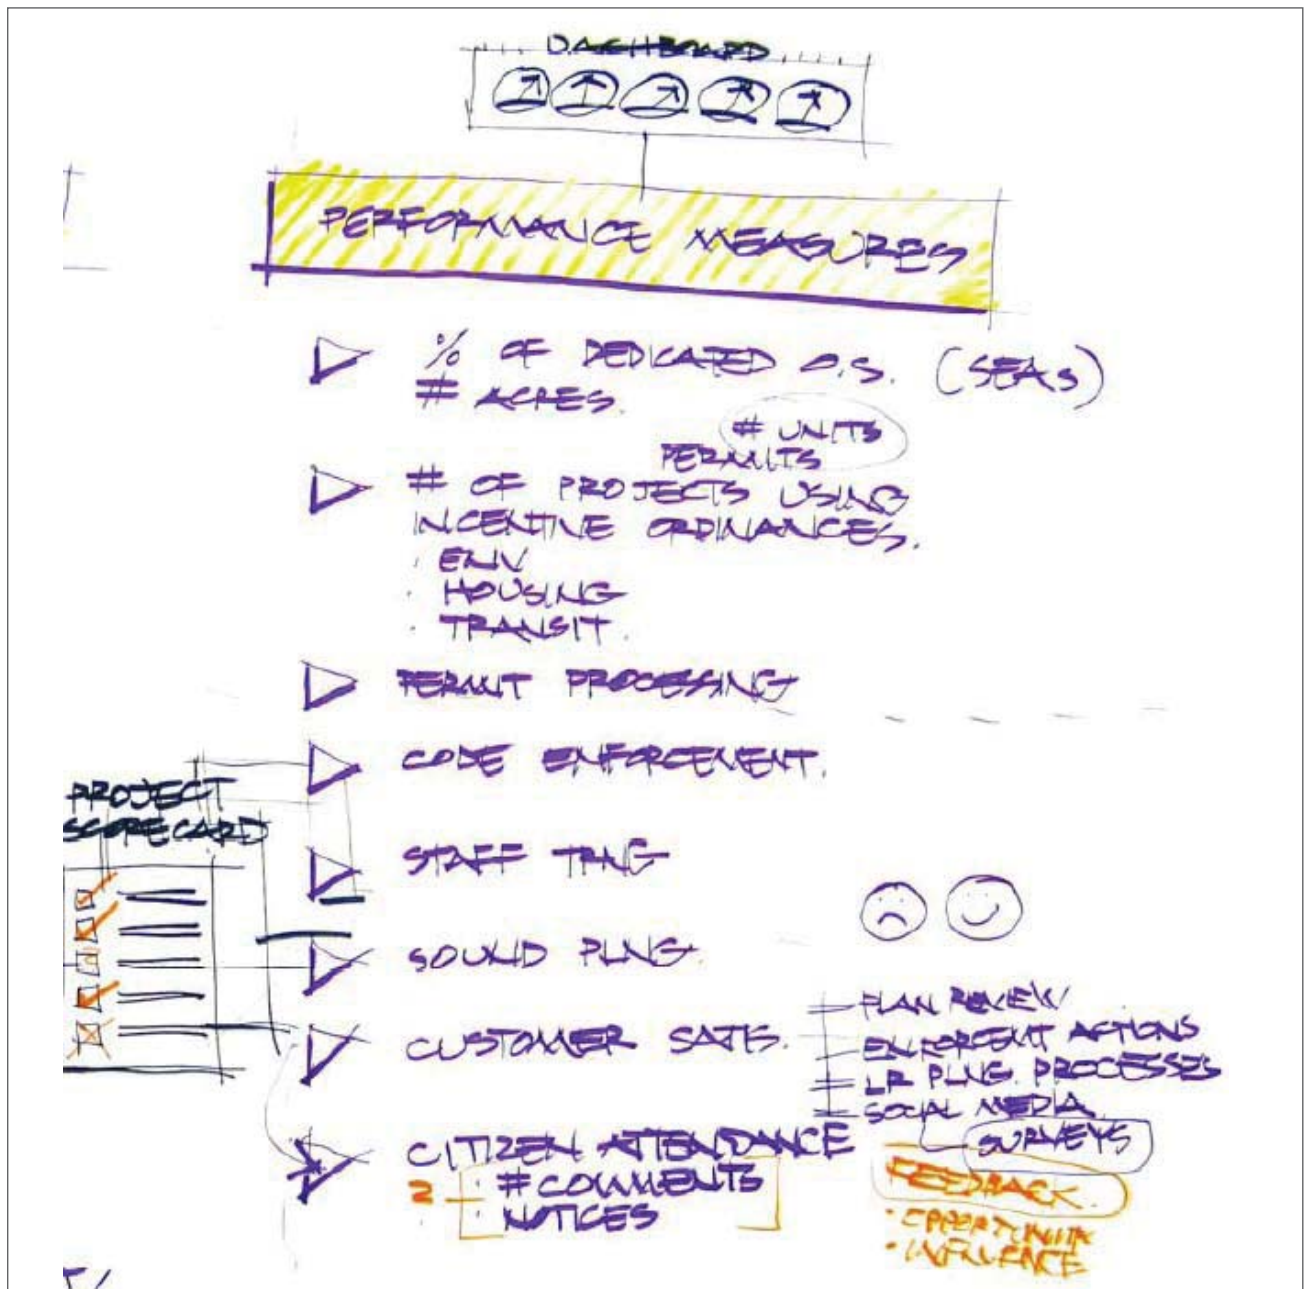 DASHBOARD
PERFORMANCE MEASURES
% OF DEDICATED O.S. (SEAs)
# ACRES.
# UNITS
PERMITS
# OF PROJECTS USING
INCENTIVE ORDINANCES.
· ENV
· HOUSING
· TRANSIT.
PERMIT PROCESSING
CODE ENFORCEMENT.
PROJECT
SCORECARD
STAFF TRNG
SOUND PLNG.
CUSTOMER SATIS.
PLAN REVIEW
ENFORCEMT ACTIONS
LR PLNG. PROCESSES
SOCIAL MEDIA
SURVEYS
CITIZEN ATTENDANCE
2 · # COMMENTS
· NOTICES
FEEDBACK.
· OPPORTUNITY
· INFLUENCE